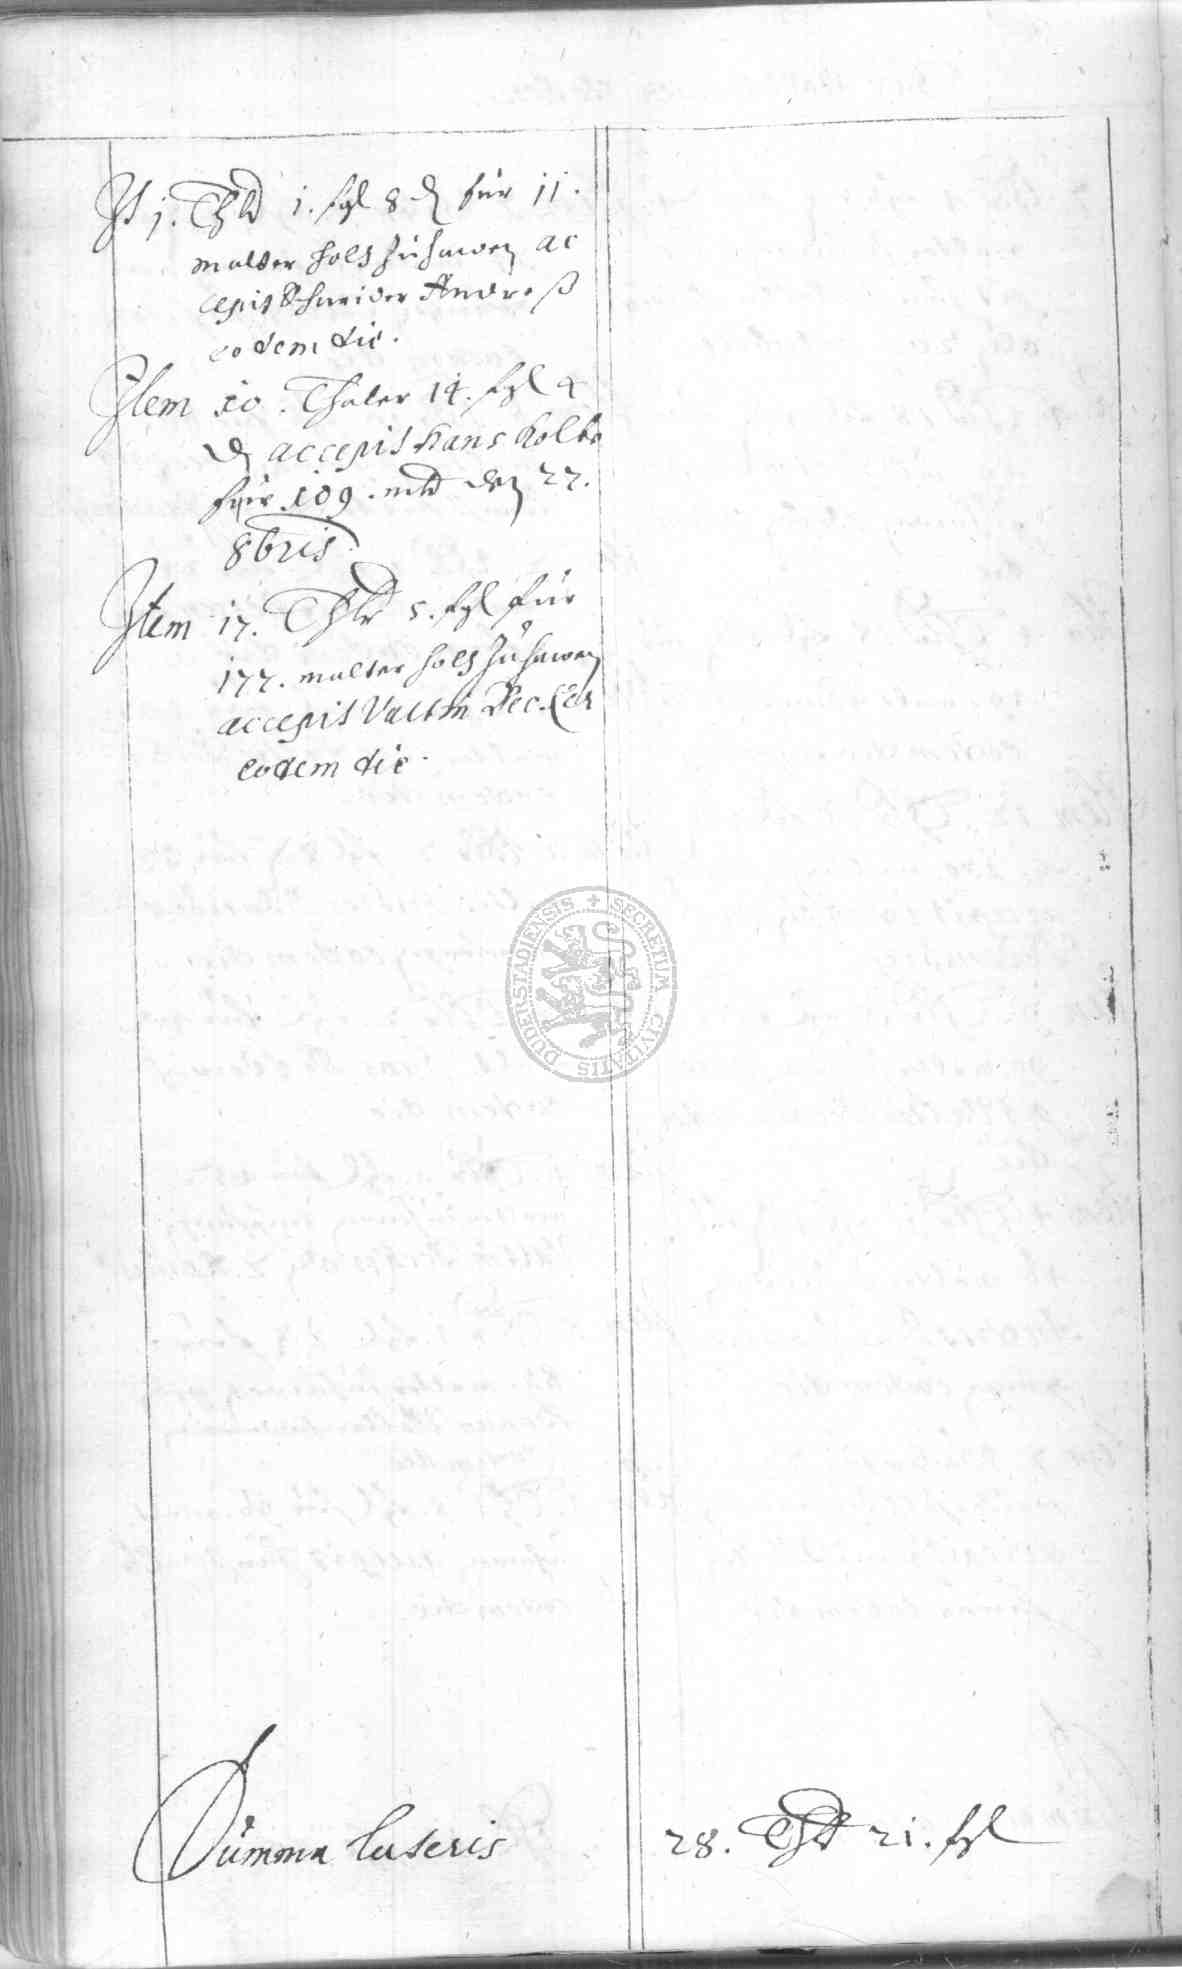 It 1. Thlr 1. sgl 8 ₰ für 11.
malder holtz zuhawen ac
cepit Schneider Andreß
eodem die.
Item 10. Thaler 14. sgl 4
₰ accepit Hans Kolbe
für 109. mld den 27.
8bris
Item 17. Thlr 5. sgl für
177. malter holtz zuhawen
accepit Valtin Becker
eodem die.
DUDERSTADIENSIS + SECRETUM CIVITATIS
Summa lateris 28. Thlr 21. sgl